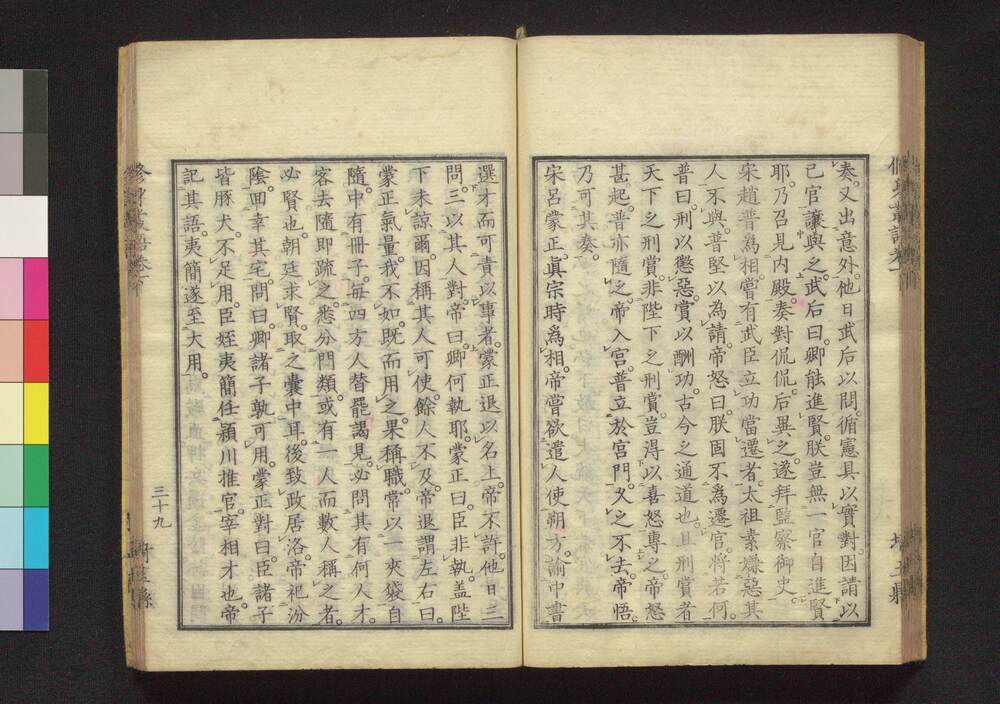 奏又出意外他日武后以問循憲具以實對因請以
己官讓與之武后曰卿能進賢朕豈無一官自進賢
耶乃召見内殿奏對侃侃后異之遂拜監察御史
宋趙普爲相嘗有武臣立功當遷者太祖素嫌惡其
人不與普堅以為請帝怒曰朕固不爲遷官將若何
普曰刑以懲惡賞以酬功古今之通道也且刑賞者
天下之刑賞非陛下之刑賞豈得以喜怒專之帝怒
甚起普亦隨之帝入宮普立於宮門久之不去帝悟
乃可其奏
宋呂蒙正眞宗時爲相帝嘗欲遣人使朔方諭中書
選才而可責以事者蒙正退以名上帝不許他日三
問三以其人對帝曰卿何執耶蒙正曰臣非執盖陛
下未諒爾因稱其人可使餘人不及帝退謂左右曰
蒙正氣量我不如既而用之果稱職常以一夾袋自
隨中有冊子每四方人替罷謁見必問其有何人才
客去隨即疏之悉分門類或有一人而數人稱之者
必賢也朝廷求賢取之囊中耳後致政居洛帝祀汾
陰回幸其宅問曰卿諸子孰可用蒙正對曰臣諸子
皆豚犬不足用臣姪夷簡任潁川推官宰相才也帝
記其語夷簡遂至大用
三十九